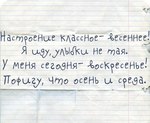 Настроение классное - весеннее!
Я иду, улыбки не тая.
У меня сегодня - воскресенье!
Пофигу, что осень и среда.